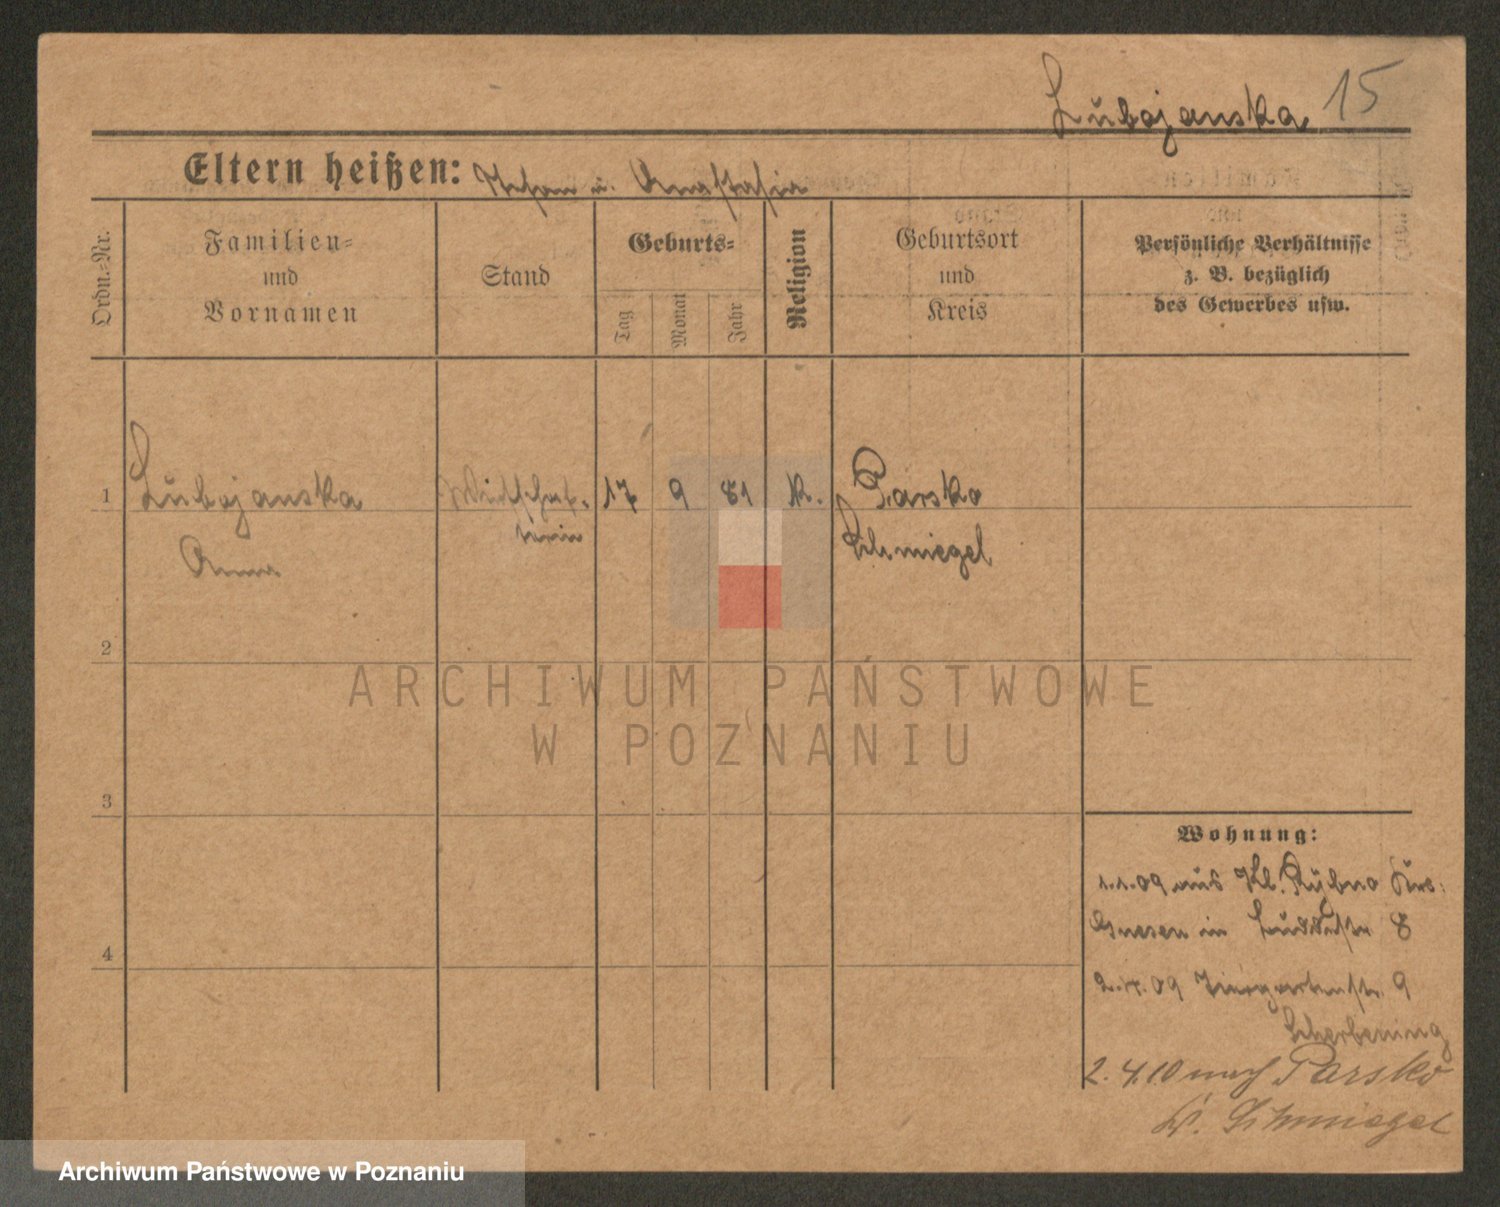 Lubojanska 15
Eltern heißen: Stefan u. Anastasia
Ordn.-Nr.
Familien-
und
Vornamen
Stand
Geburts-
Tag
Monat
Jahr
Religion
Geburtsort
und
Kreis
Persönliche Verhältnisse
z. B. bezüglich
des Gewerbes usw.
1 Lubojanska Wirtschaf- 17 9 81 k. Parsko
Anna terin Schmiegel
2
3
4
Wohnung:
1.1.09 aus Kl. Rybno Krs.
Gnesen in 8
2.4.09 Tiergartenstr. 9
2.4.10 nach Parsko
Kr. Schmiegel
ARCHIWUM PAŃSTWOWE
W POZNANIU
Archiwum Państwowe w Poznaniu